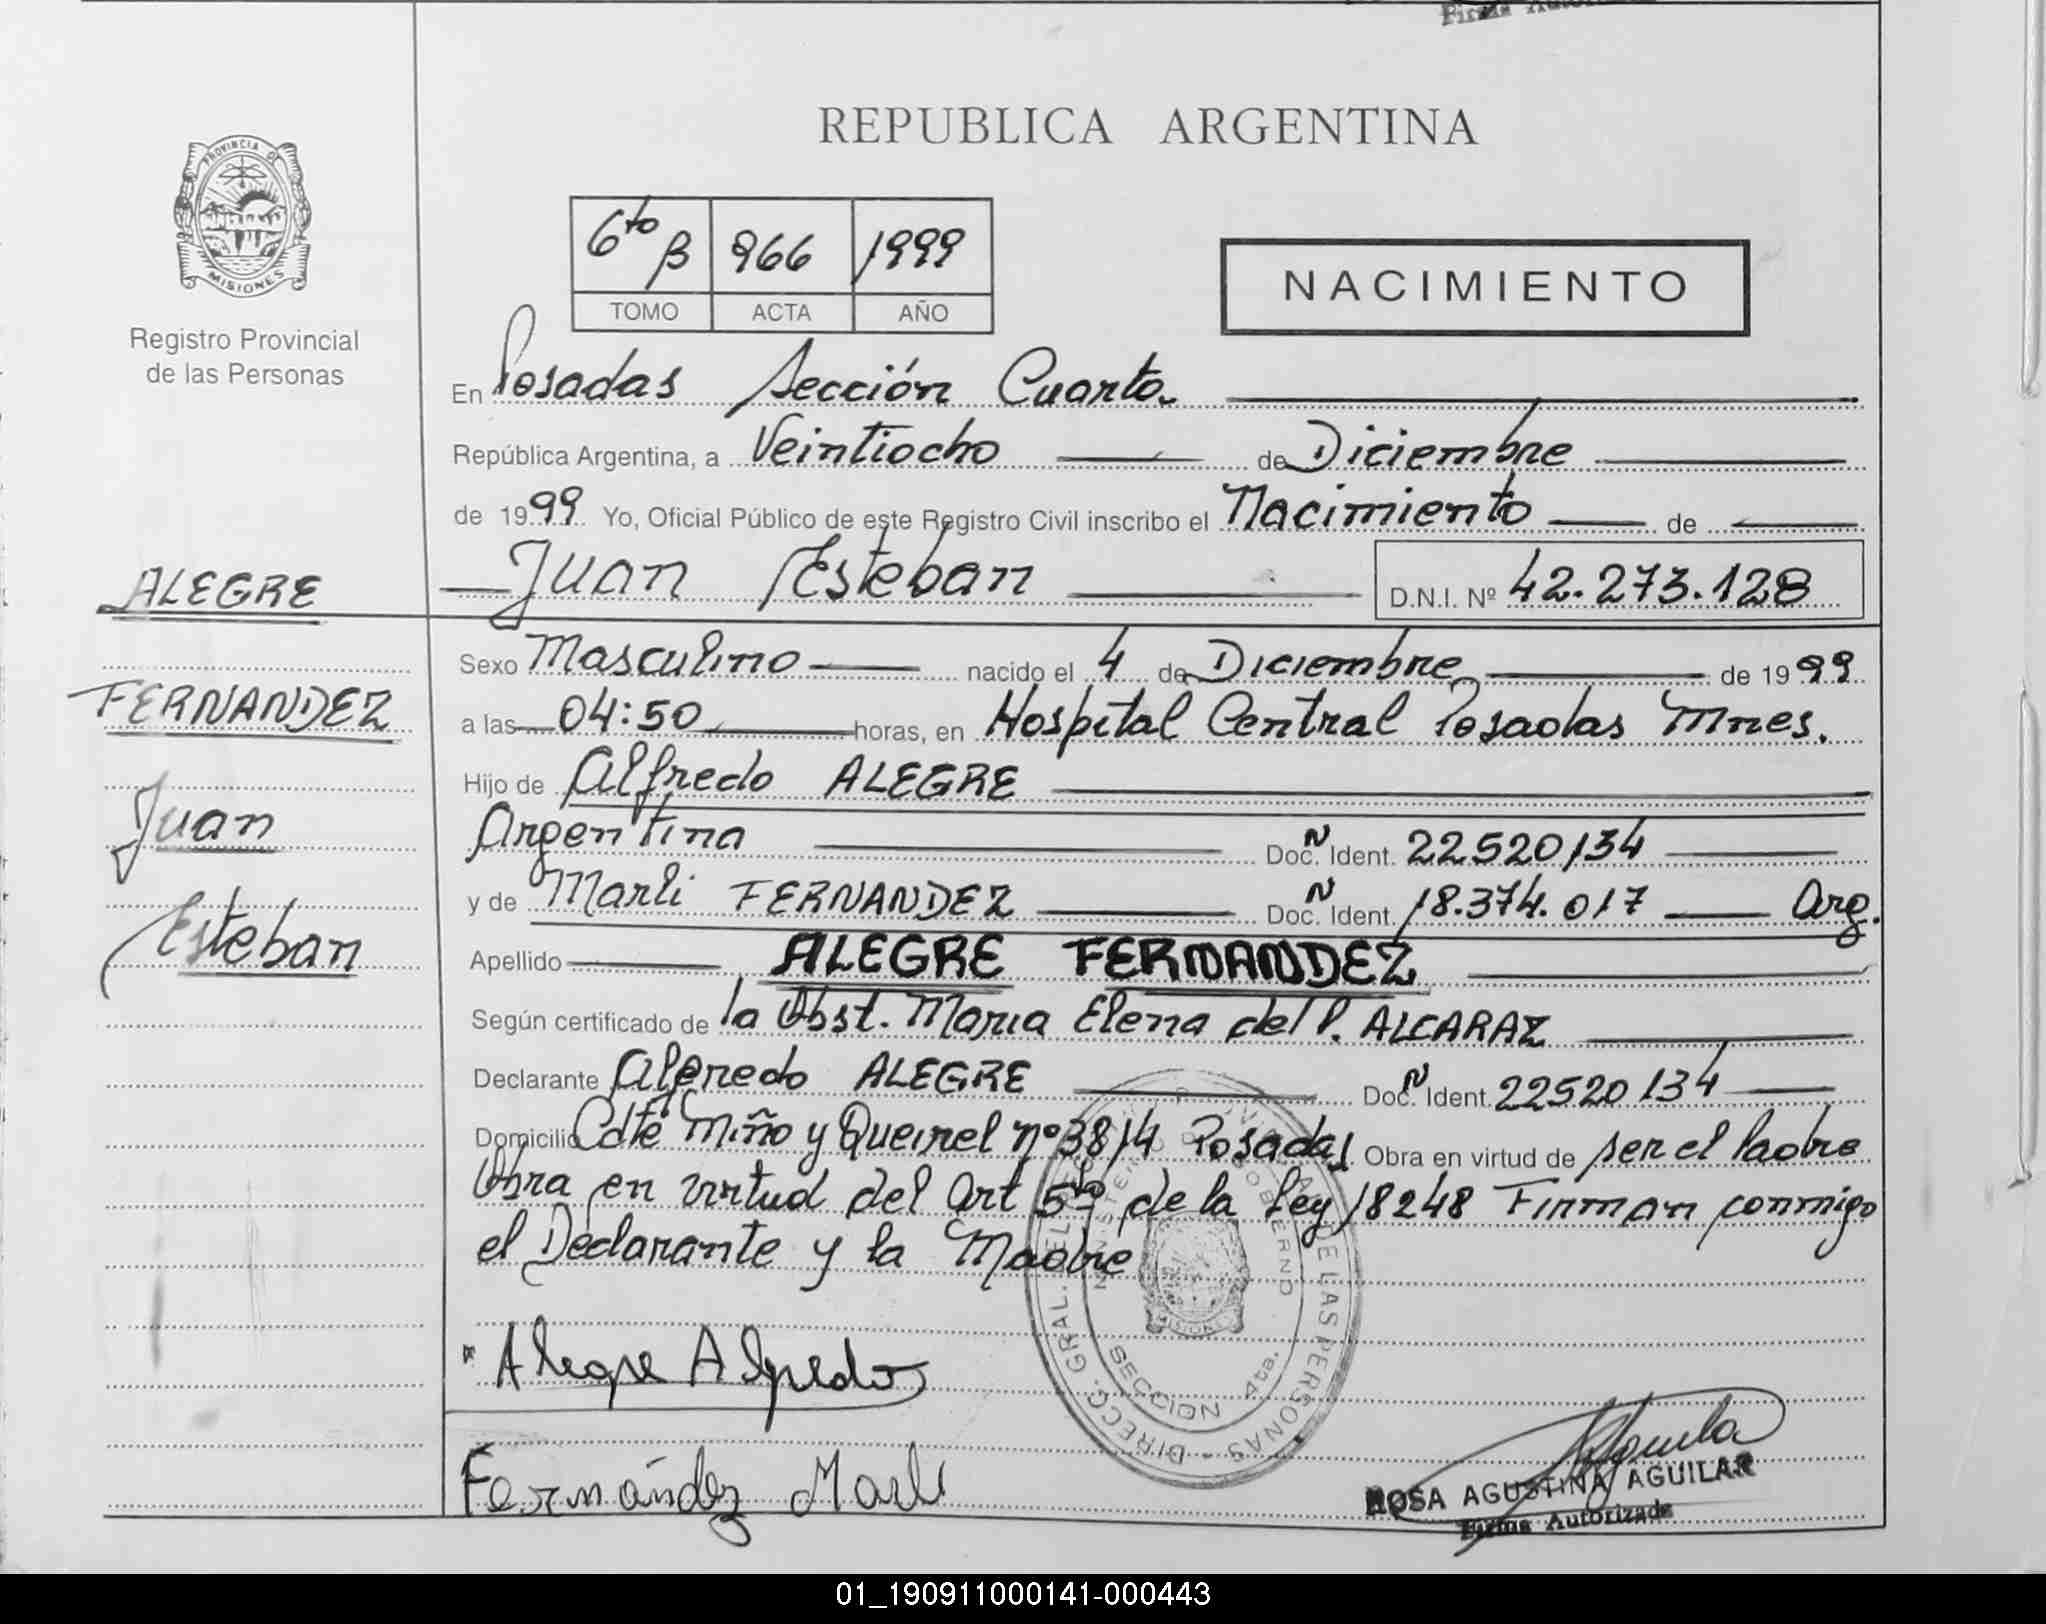 REPUBLICA ARGENTINA
PROVINCIA DE
MISIONES
Registro Provincial
de las Personas
6to B 966 1999
TOMO ACTA AÑO
NACIMIENTO
En Posadas Sección Cuarta.
República Argentina, a Veintiocho de Diciembre
de 1999 Yo, Oficial Público de este Registro Civil inscribo el Nacimiento de
Juan Esteban D.N.I. Nº 42.273.128
ALEGRE
FERNANDEZ
Juan
Esteban
Sexo Masculino nacido el 4 de Diciembre de 1999
a las 04:50 horas, en Hospital Central Posadas Mnes.
Hijo de Alfredo ALEGRE
Argentina Doc. N Ident. 22520134
y de Marli FERNANDEZ Doc. N Ident. 18.374.017 Arg.
Apellido ALEGRE FERNANDEZ
Según certificado de la Obst. Maria Elena del P. ALCARAZ
Declarante Alfredo ALEGRE Doc. N Ident. 22520134
Domicilio Cdte Miño y Queirel nº 3814 Posadas Obra en virtud de ser el Padre
Obra en virtud del Art 5to de la Ley 18248 Firman conmigo
el Declarante y la Madre
Alegre Alfredo
Fernández Marli
SECCION 4ta.
ROSA AGUSTINA AGUILAR
Firma Autorizada
01_190911000141-000443